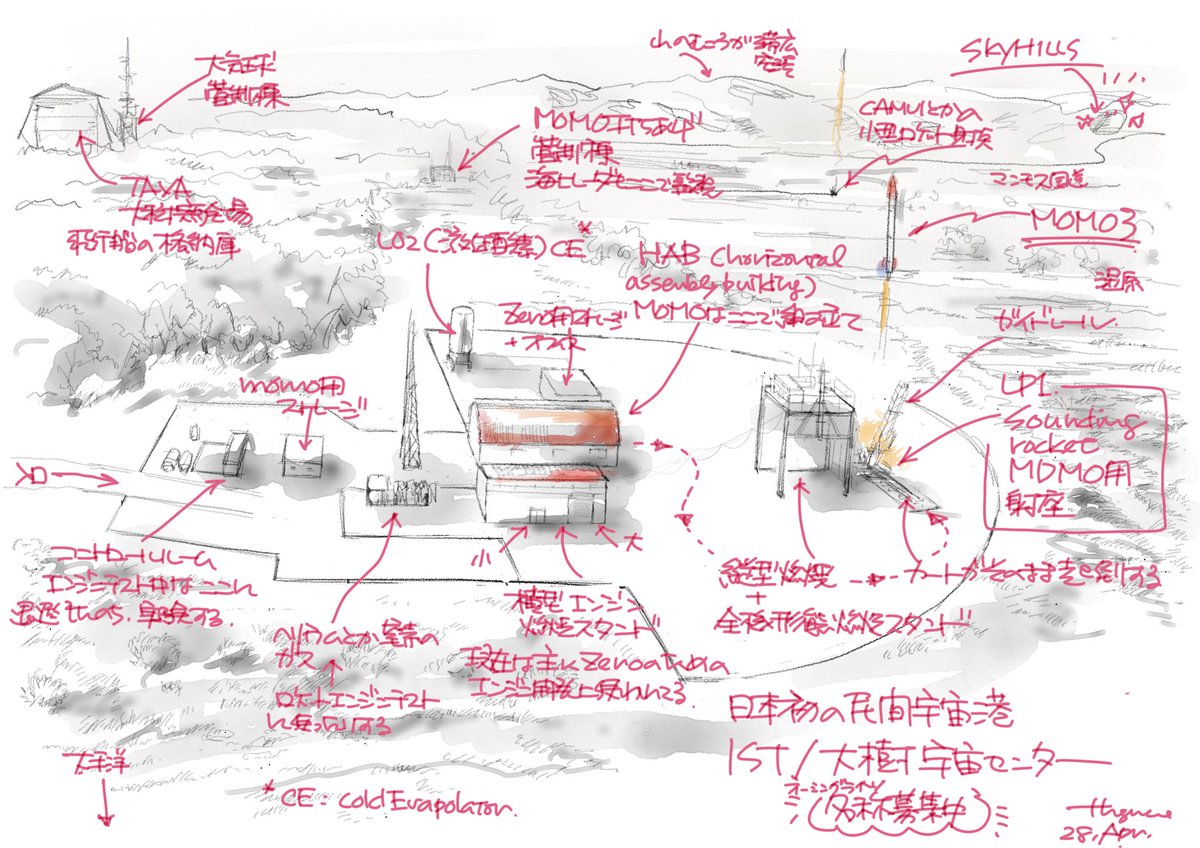 大気球
管制棟
山のむこうが帯広
空港
SKYHILLS
CAMUIとかの
小型ロケット射場
MOMO打ちあげ
管制棟
海上レーダもここで監視
マンモス国道
JAXA
大樹実験場
飛行船の格納庫
MOMO3
湿原
LO2(液体酸素)CE*
HAB (horizontal
assembly building)
MOMOはここで組み立て
Zero用ストレージ
+オフィス
ガイドレール
momo用
ストレージ
LP1
Sounding
rocket
MOMO用
射座
入口
小
大
コントロールルーム
エンジンテスト中はここに
退避
ヘリウムとか窒素の
ガス
ロケットエンジンテスト
に使ったりする
横型エンジン
燃焼スタンド
現在は主にZeroの
エンジン開発に使われてる
縦型燃焼
+
全機形態燃焼スタンド
カートがそのまま
日本初の民間宇宙港
IST/大樹宇宙センター
ネーミングライツ
名称募集中
太平洋
*CE: Cold Evaporator.
28, Apr.